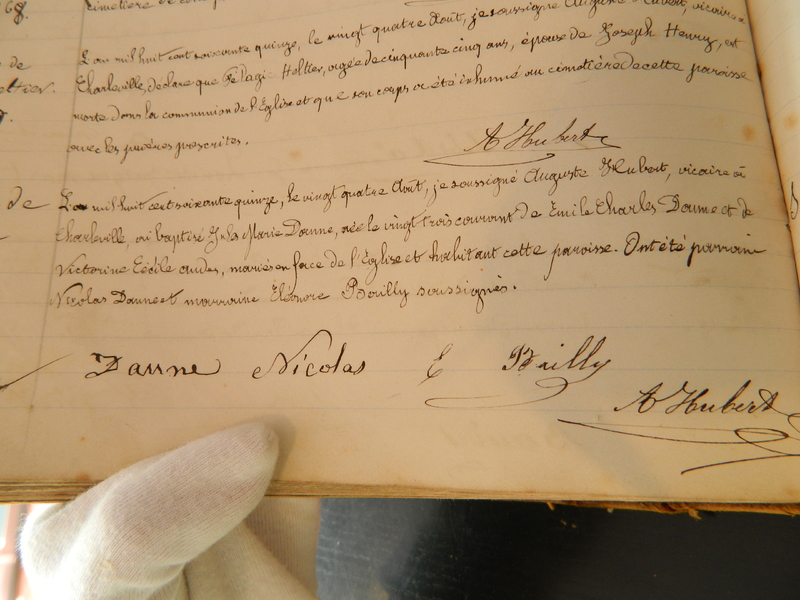 68.
cimetière de cette
L'an mil huit cent soixante quinze, le vingt quatre Août, je soussigné Auguste Hubert, vicaire à
de
Charleville, déclare que Pélagie Holtier, agée de cinquante cinq ans, épouse de Joseph Henry, est
morte dans la communion de l'Eglise et que son corps a été inhumé au cimetière de cette paroisse
avec les prières prescrites.
A Hubert
de
L'an mil huit cent soixante quinze, le vingt quatre Août, je soussigné Auguste Hubert, vicaire à
Charleville, ai baptisé Inès Marie Danne, née le vingt trois courant de Emile Charles Danne et de
Victorine Cécile, mariés en face de l'Eglise et habitant cette paroisse. Ont été parrain
Nicolas Danne et marraine Eléonore Bailly soussignés.
Danne Nicolas E Bailly
A Hubert